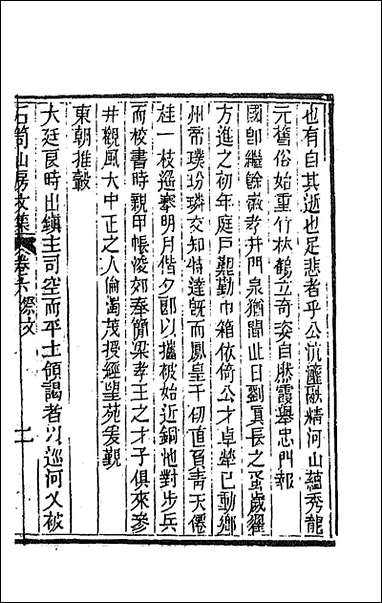 也有自其逝也足悲者乎公沆瀣融精河山蘊秀龍
元舊俗始重竹林鶴立奇姿自勝霞舉忠門報
國卽繼餘徽孝井門泉猶聞此日劉眞長之蚤歲翟
方進之初年庭戸艱勤巾箱依倚公才卓犖已動鄉
州帝璞玢璘交知特達旣而鳳皇千仞直負青天僊
桂一枝遥攀明月偕夕郎以攟被始近銅池對步兵
而校書時親甲帳淩郊奉簡梁孝王之才子俱來參
井觀風大中正之人倫濁茂授經望苑爰覲
東朝推轂
大廷良時出鎮主司空而平土領謁者以巡河乂被
石笥山房文集 卷六祭文 二